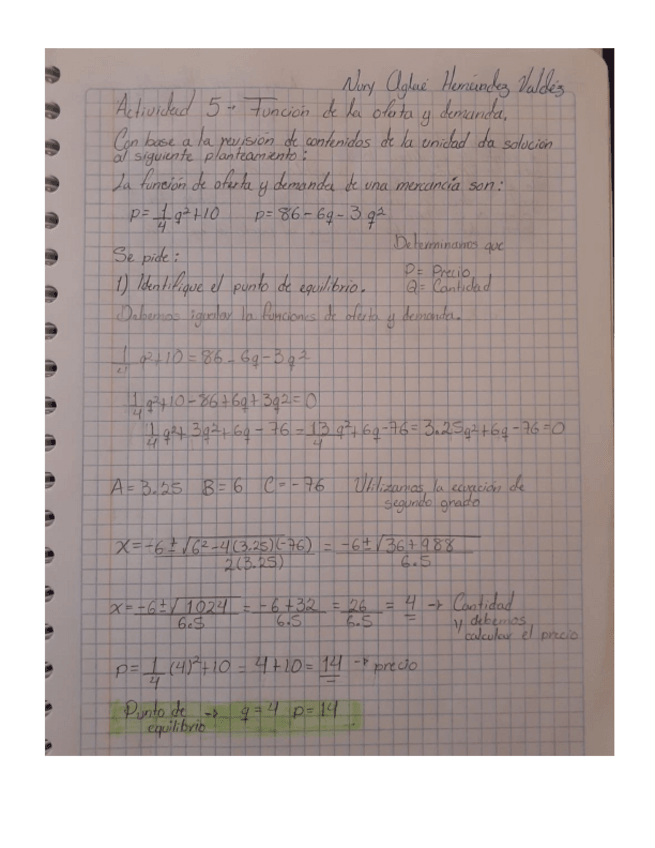 Nury Aglaé Hernández Valdéz
Actividad 5 → Función de la oferta y demanda.
Con base a la revisión de contenidos de la unidad da solución
al siguiente planteamiento:
La función de oferta y demanda de una mercancía son:
p= 1/4 q²+10 p= 86-6q-3q²
Determinamos que
Se pide:
P= Precio
1) Identifique el punto de equilibrio. Q= Cantidad
Debemos igualar la funciones de oferta y demanda.
1/4 q²+10 = 86-6q-3q²
1/4 q²+10-86+6q+3q²=0
1/4 q²+3q²+6q-76 = 13/4 q²+6q-76 = 3.25q²+6q-76=0
A= 3.25 B= 6 C= -76 Utilizamos la ecuación de
segundo grado
x= -6±√6²-4(3.25)(-76) / 2(3.25) = -6±√36+988 / 6.5
x= -6±√1024 / 6.5 = -6+32 / 6.5 = 26 / 6.5 = 4 → Cantidad
y debemos
calcular el precio
p= 1/4 (4)²+10 = 4+10= 14 → precio
Punto de → q=4 p=14
equilibrio